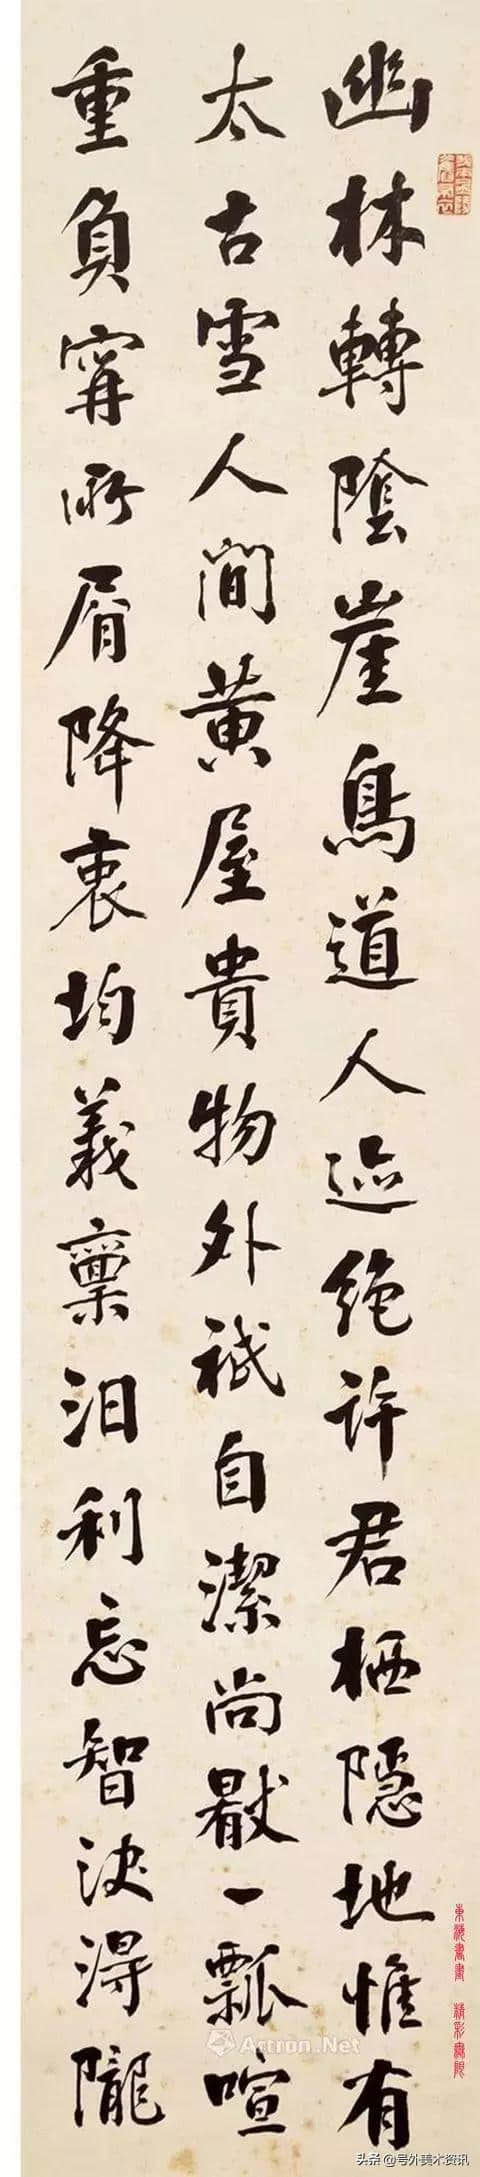 幽林轉陰崖鳥道人迹絕許君栖隱地惟有
太古雪人間黃屋貴物外祇自潔尚厭一瓢喧
重負寧所屑降衷均義稟汩利忘智決得隴
Artron.Net
頭条@号外美术资讯